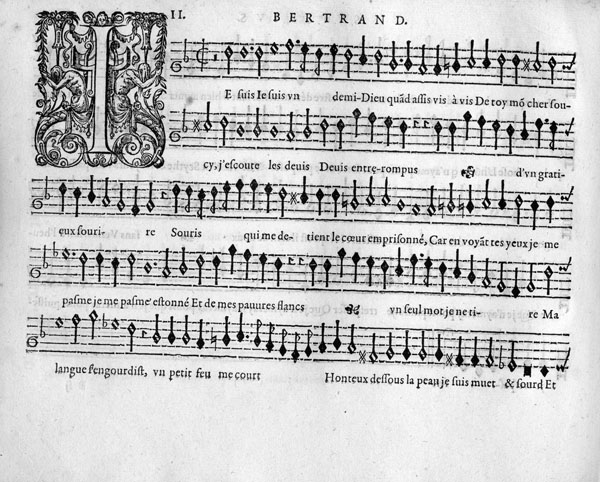 II. BERTRAND.
IE suis Ie suis vn demi-Dieu quãd assis vis à vis De toy mõ cher sou-
cy, j'escoute les deuis Deuis entre-rompus d'vn grati-
eux souri- re Souris qui me de- tient le cœur emprisonné, Car en voyãt tes yeux je me
pasme je me pasme estonné Et de mes pauures flancs vn seul mot je ne ti- re Ma
langue s'engourdist, vn petit feu me court Honteux dessous la peau je suis muet & sourd Et